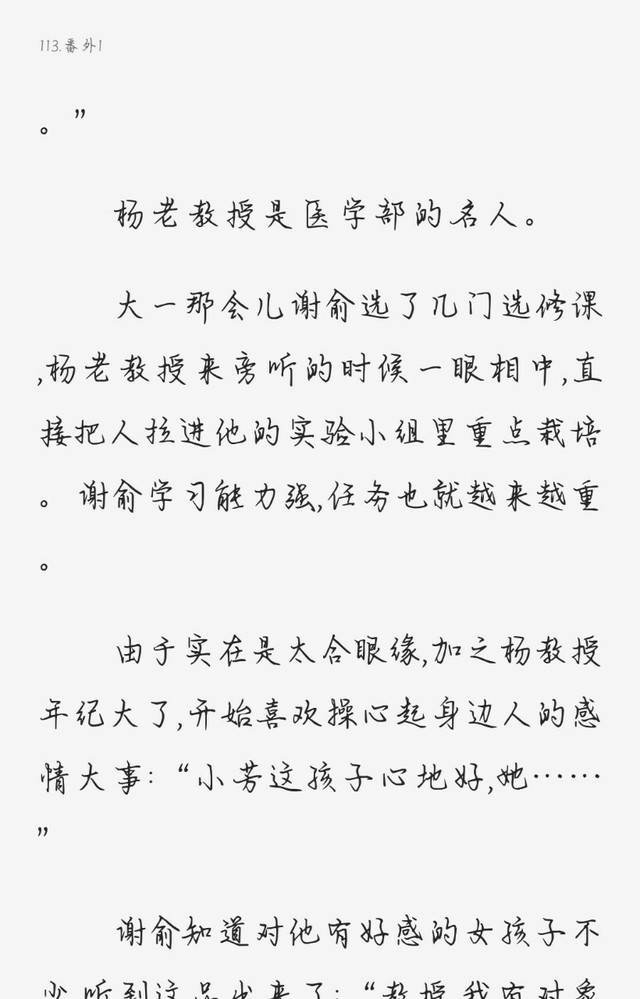 113.番外1
。”
杨老教授是医学部的名人。
大一那会儿谢俞选了几门选修课
,杨老教授来旁听的时候一眼相中,直
接把人拉进他的实验小组里重点栽培
。谢俞学习能力强,任务也就越来越重
。
由于实在是太合眼缘,加之杨教授
年纪大了,开始喜欢操心起身边人的感
情大事:“小芳这孩子心地好,她……
”
谢俞知道对他有好感的女孩子不
少,听到这
来了:“教授,我有对象